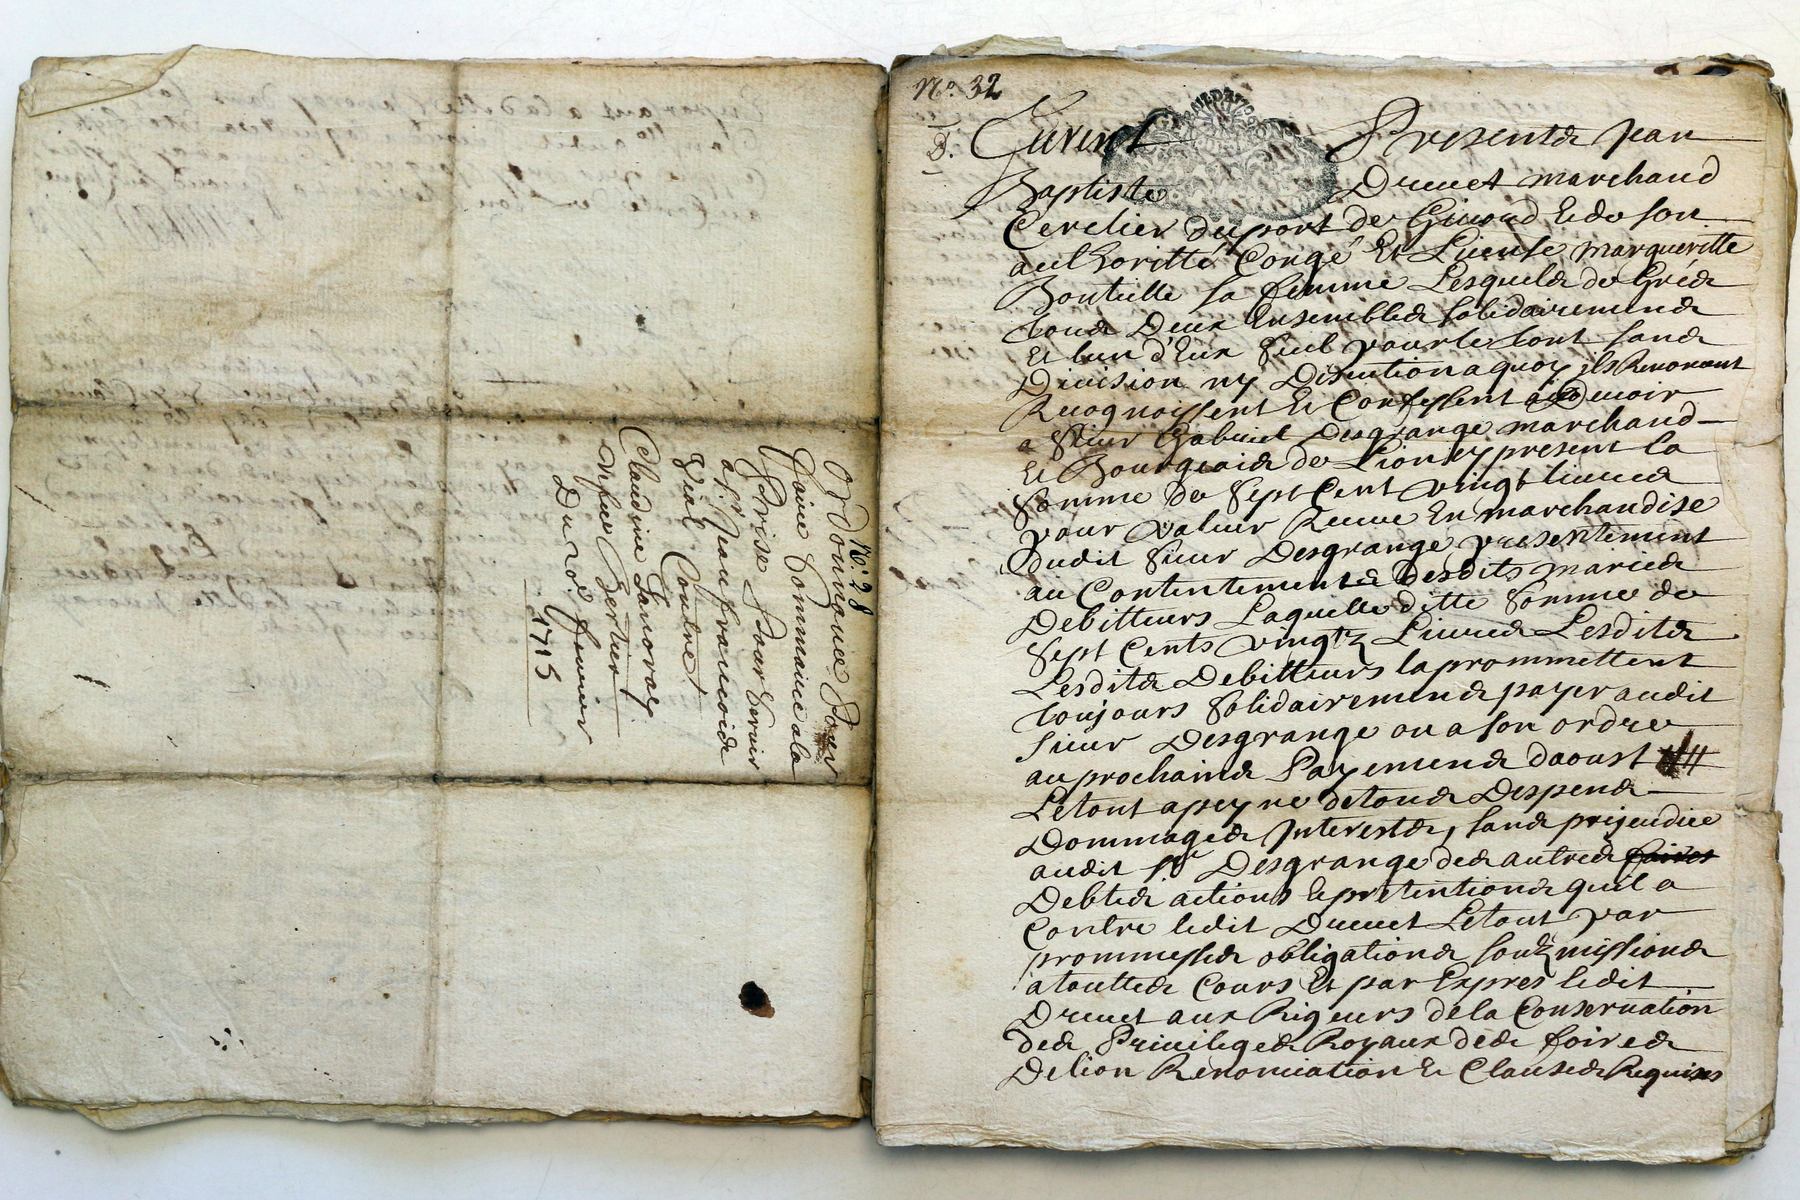 N.° 28
Ordonnance Pour
faire Sommaire a la
Prise Pour Servir
a Sr. Jean francois
Vial Contre
Claudine Lanoray
vefve Bertier
Du 20e. feuvrier
1715
N.° 32
B. Furent Presents Jean
Baptiste Dreuet marchand
Cerclier du port de Givord & de son
authoritté Congé Et License Margueritte
Bouteille sa femme Lesquels de Gré &
tous Deux Ensembles solidairement
Et lun d'Eux seul pour le tout sans
Division ny Discution a quoy ils Renoncent
Recognoissent Et Confessent Devoir
a Sieur Gabriel Desgrange marchand
Et Bourgeois de Lion cy present La
Somme de Sept Cent vingt livres
pour valeur Receue En marchandise
dudit Sieur Desgrange presentement
au Contentement Desdits maries
Debitteurs Laquelle ditte Somme de
Sept Cents vingt Livres Lesdits
Lesdits Debitteurs la prommettent
toujours Solidairement payer audit
Sieur Desgrange ou a son ordre
au prochains Payement daoust
Le tout a peyne de tous Despens
Dommages Interests, sans prejeudice
audit Sr Desgrange des autres foires
Debtes actions & pretentions quil a
Contre ledit Dreuet Le tout par
prommesses obligations soubzmissions
a touttes Cours Et par Expres ledit
Dreuet aux Rigeurs de la Conservation
des Privileges Royaux des foires
De lion Renonciation & Clauses Requises